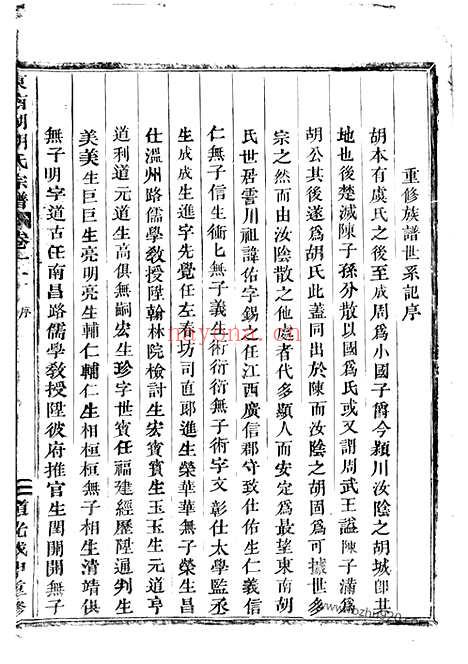 重修族譜世系記序
胡本有虞氏之後至成周爲小國子爵今潁川汝陰之胡城卽其
地也後楚滅陳子孫分散以國爲氏或又謂周武王諡陳子滿爲
胡公其後遂爲胡氏此蓋同出於陳而汝陰之胡固爲可據世多
宗之然而由汝陰散之他處者代多顯人而安定爲最望東南胡
氏世居雲川祖諱佑字錫之任江西廣信郡守致仕佑生仁義信
仁無子信生術匕無子義生術衍衍無子術字文彰仕太學監丞
生成成生進字先覺任左春坊司直郞進生榮華華無子榮生昌
仕溫州路儒學敎授陞翰林院檢討生宏賓賓生玉玉生元道亨
道利道元道生高俱無嗣宏生珍字世賓任福建經歷陞通判生
美美生巨巨生亮明亮生輔仁輔仁生相桓桓無子相生清靖俱
無子明字道古任南昌路儒學敎授陞彼府推官生閏開開無子
東南湖胡氏宗譜 卷一 序
道光戊申重修
miyona.cn